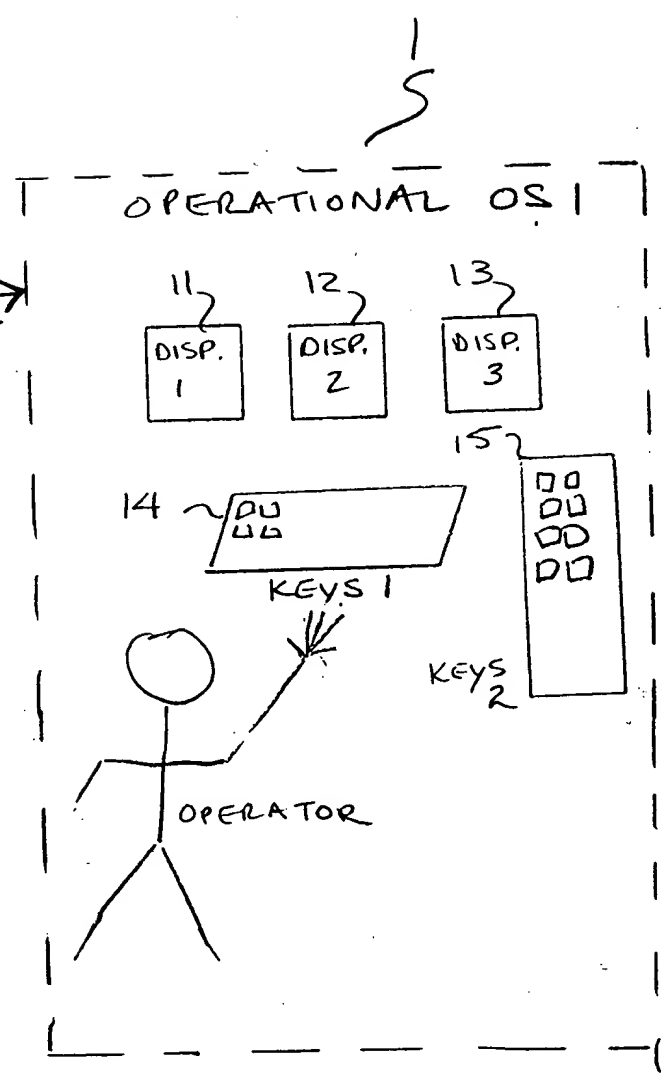 1
OPERATIONAL OS 1
11
12
13
DISP.
1
DISP.
2
DISP.
3
15
14
KEYS 1
KEYS
2
OPERATOR